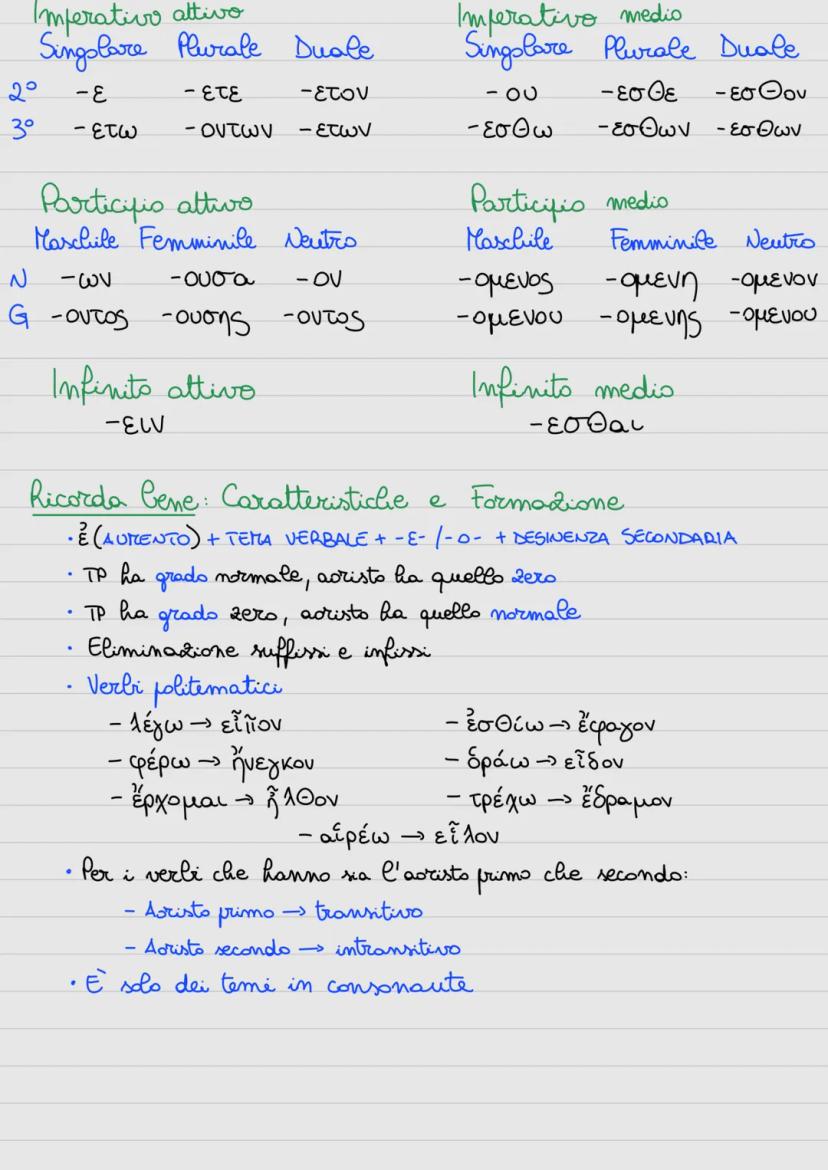 Imperativo attivo Imperativo medio
Singolare Plurale Duale Singolare Plurale Duale
2° -ε -ετε -ετον -ου -εσθε -εσθον
3° -ετω -οντων -ετων -εσθω -εσθων -εσθων
Participio attivo Participio medio
Maschile Femminile Neutro Maschile Femminile Neutro
N -ων -ουσα -ον -ομενος -ομενη -ομενον
G -οντος -ουσης -οντος -ομενου -ομενης -ομενου
Infinito attivo Infinito medio
-ειν -εσθαι
Ricorda bene: Caratteristiche e Formazione
· ἐ (AUMENTO) + TEMA VERBALE + -ε- /-ο- + DESINENZA SECONDARIA
· TP ha grado normale, aoristo ha quello zero
· TP ha grado zero, aoristo ha quello normale
· Eliminazione suffissi e infissi
· Verbi politematici
- λέγω → εἶπον - ἐσθίω → ἔφαγον
- φέρω → ἤνεγκον - ὁράω → εἶδον
- ἔρχομαι → ἦλθον - τρέχω → ἔδραμον
- αἱρέω → εἷλον
· Per i verbi che hanno sia l'aoristo primo che secondo:
- Aoristo primo → transitivo
- Aoristo secondo → intransitivo
· È solo dei temi in consonante